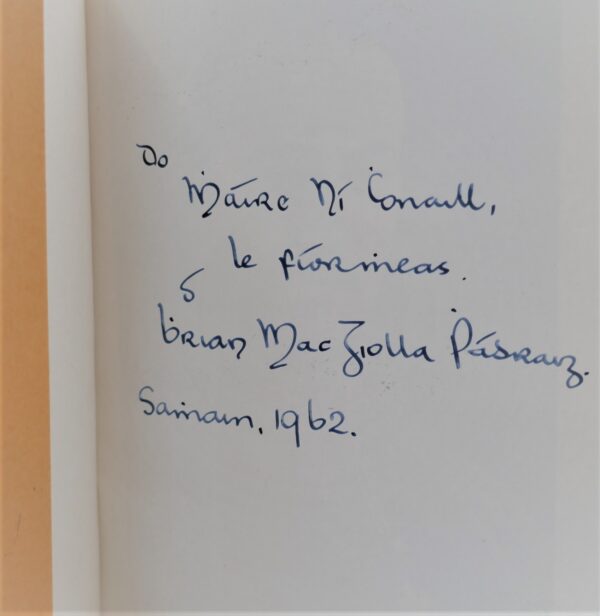 Do
Ṁáire Ní Ċonaill,
le fíorṁeas.
ó
Ḃrian Mac Giolla Ṗádraig.
Saṁain, 1962.